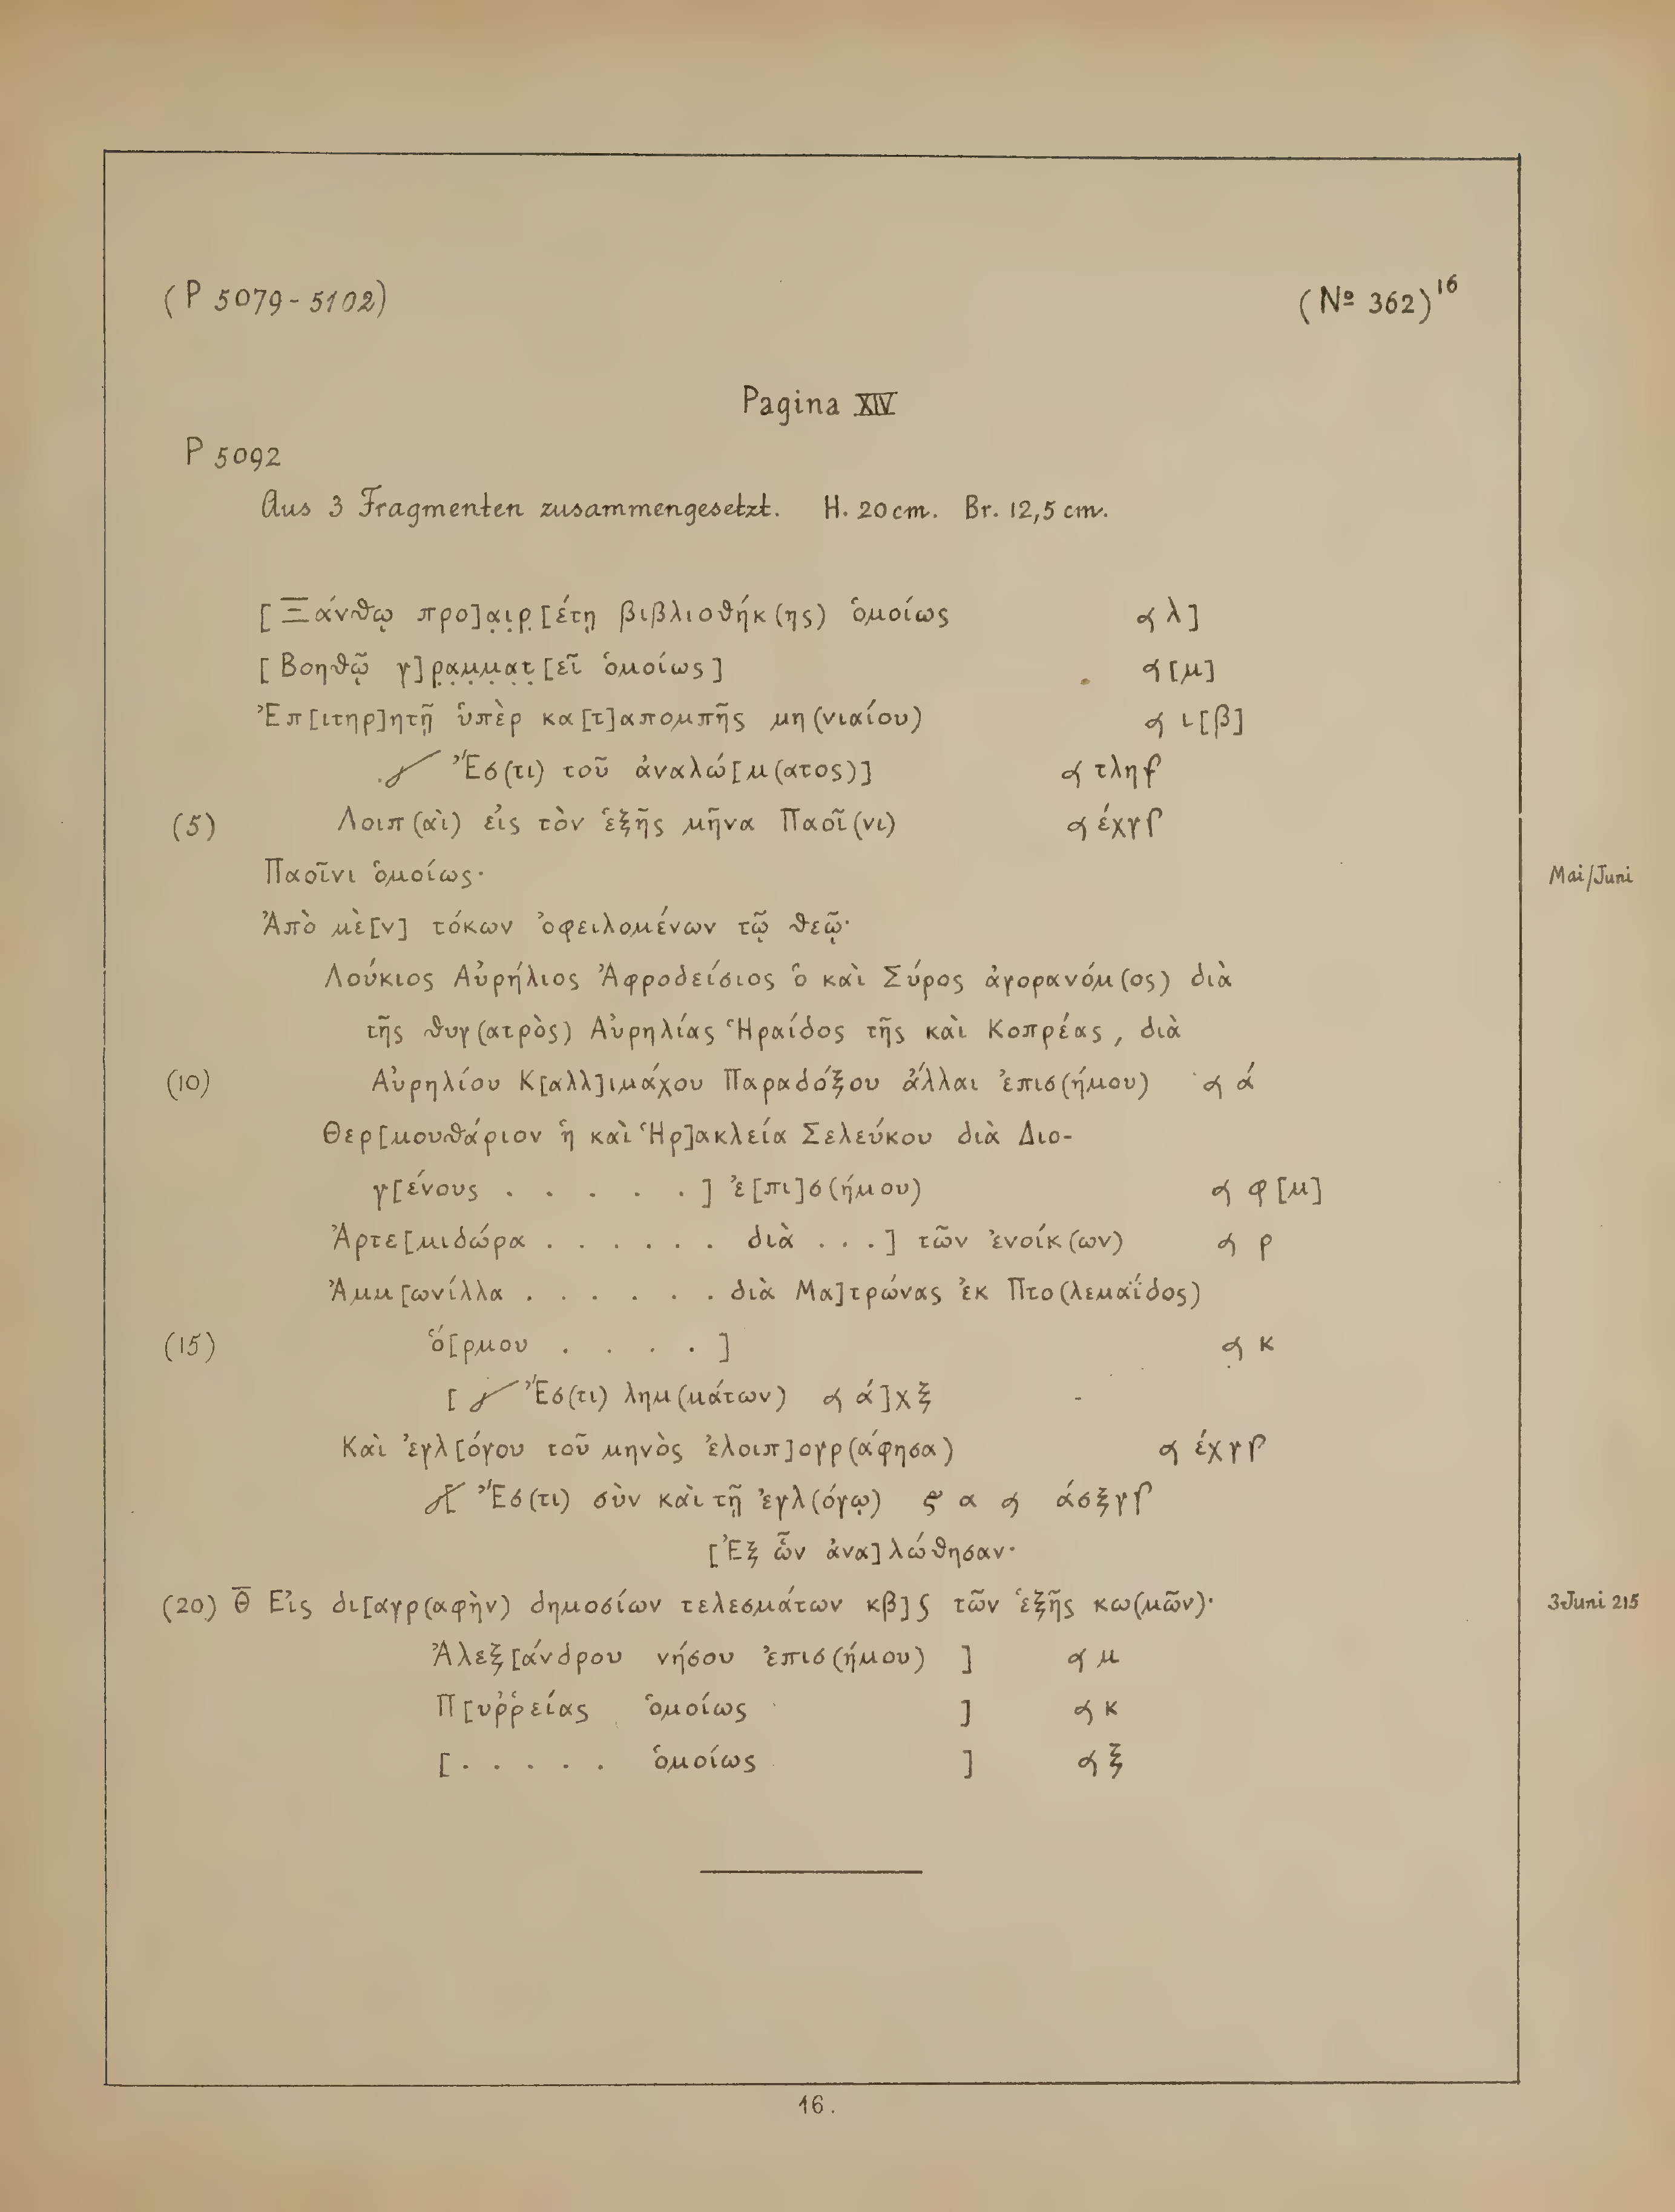 (P 5079-5102)
(Nº 362)¹⁶
Pagina XIV
P 5092
Aus 3 Fragmenten zusammengesetzt. H. 20cm. Br. 12,5 cm.
[Ξάνθῳ προ]α̣ι̣ρ̣[έτῃ βιβλιοθήκ(ης) ὁμοίως ∝ λ]
[Βοηθῷ γ]ρ̣α̣μ̣μ̣α̣τ̣[εῖ ὁμοίως] ∝ [μ]
Ἐπ[ιτηρ]ητῇ ὑπὲρ κα[τ]απομπῆς μη(νιαίου) ∝ ι[β]
Ἔσ(τι) τοῦ ἀναλώ[μ(ατος)] ∝ τλης
(5) Λοιπ(αὶ) εἰς τὸν ἑξῆς μῆνα Παοῖ(νι) ∝ έχγ𐅵
Παοῖνι ὁμοίως·
Mai/Juni
Ἀπὸ μὲ[ν] τόκων ὀφειλομένων τῷ θεῷ·
Λούκιος Αὐρήλιος Ἀφροδείσιος ὁ καὶ Σύρος ἀγορανόμ(ος) διὰ
τῆς θυγ(ατρὸς) Αὐρηλίας Ἡραίδος τῆς καὶ Κοπρέας, διὰ
(10) Αὐρηλίου Κ[αλλ]ιμάχου Παραδόξου ἄλλαι ἐπισ(ήμου) ∝ ά
Θερ[μουθάριον ἡ καὶ Ἡρ]ακλεία Σελεύκου διὰ Διο-
γ[ένους . . . . .] ἐ[πι]σ(ήμου) ∝ φ[μ]
Ἀρτε[μιδώρα . . . . . . διὰ . . .] τῶν ἐνοίκ(ων) ∝ ρ
Ἀμμ[ωνίλλα . . . . . . διὰ Μα]τρώνας ἐκ Πτο(λεμαΐδος)
(15) ὅ[ρμου . . . .] ∝ κ
[Ἔσ(τι) λημ(μάτων) ∝ ά]χξ
Καὶ ἐγλ[όγου τοῦ μηνὸς ἐλοιπ]ογρ(άφησα) ∝ έχγ𐅵
[Ἔσ(τι) σὺν καὶ τῇ ἐγλ(όγῳ) ϛ α ∝ άσξγ𐅵
[Ἐξ ὧν ἀνα]λώθησαν·
(20) Θ̅ Εἰς δι[αγρ(αφὴν) δημοσίων τελεσμάτων κβ] ϛ τῶν ἑξῆς κω(μῶν)·
3 Juni 215
Ἀλεξ[άνδρου νήσου ἐπισ(ήμου) ] ∝ μ
Π[υῤῥείας ὁμοίως ] ∝ κ
[. . . . . ὁμοίως ] ∝ ξ
16.